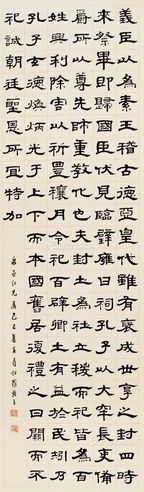 義臣以為素王稽古德亞皇代雖有褒成世享之封四時
來祭畢即歸國臣伏見臨辟雍日祠孔子以大牢長吏備
爵所以尊先師重教化也夫封土為社立稷而祀皆為百
姓興利除害以祈豐穰月令祀百辟卿士有益於民矧乃
孔子玄德煥炳光于上下而本國舊居復禮之日闕而不
祀誠朝廷聖恩所宜特加